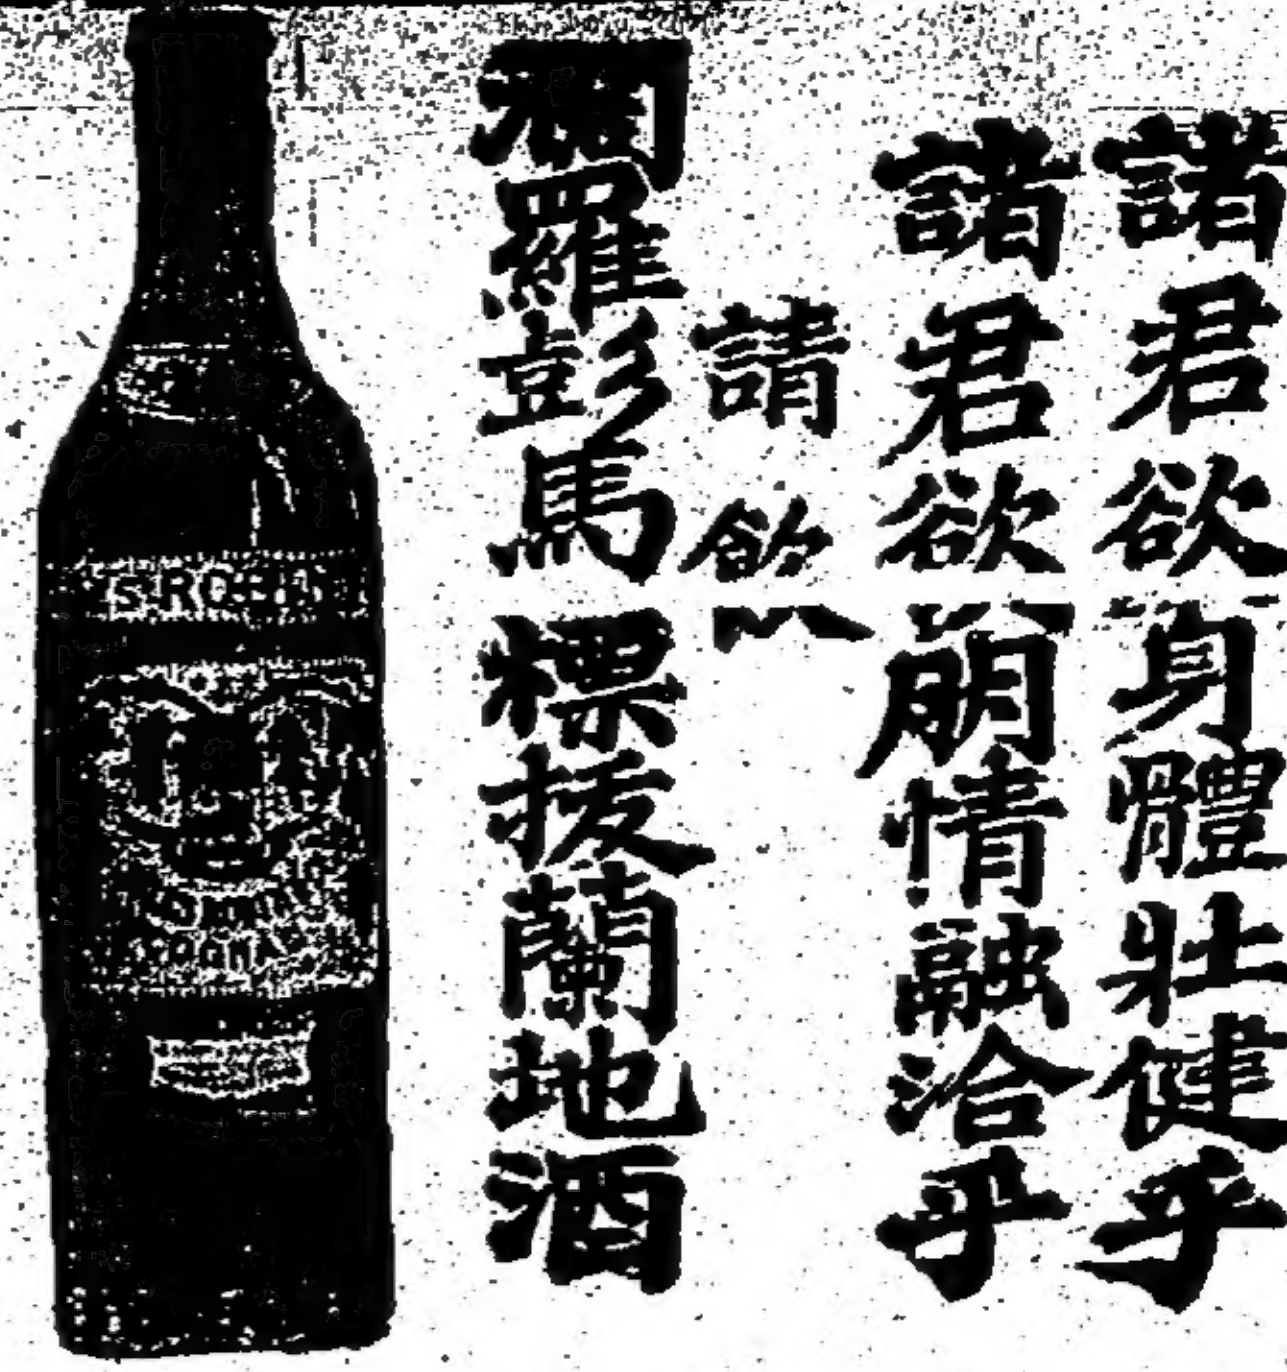 諸君欲身體壯健乎
諸君欲朋情融洽乎
請飲
羅彭馬標拔蘭地酒